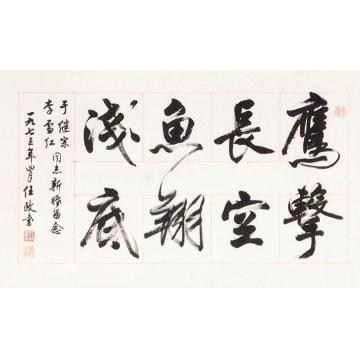 鷹擊
長空
魚翔
淺底
于继宗
李雪红
同志新婚留念
一九七三年四月任政书